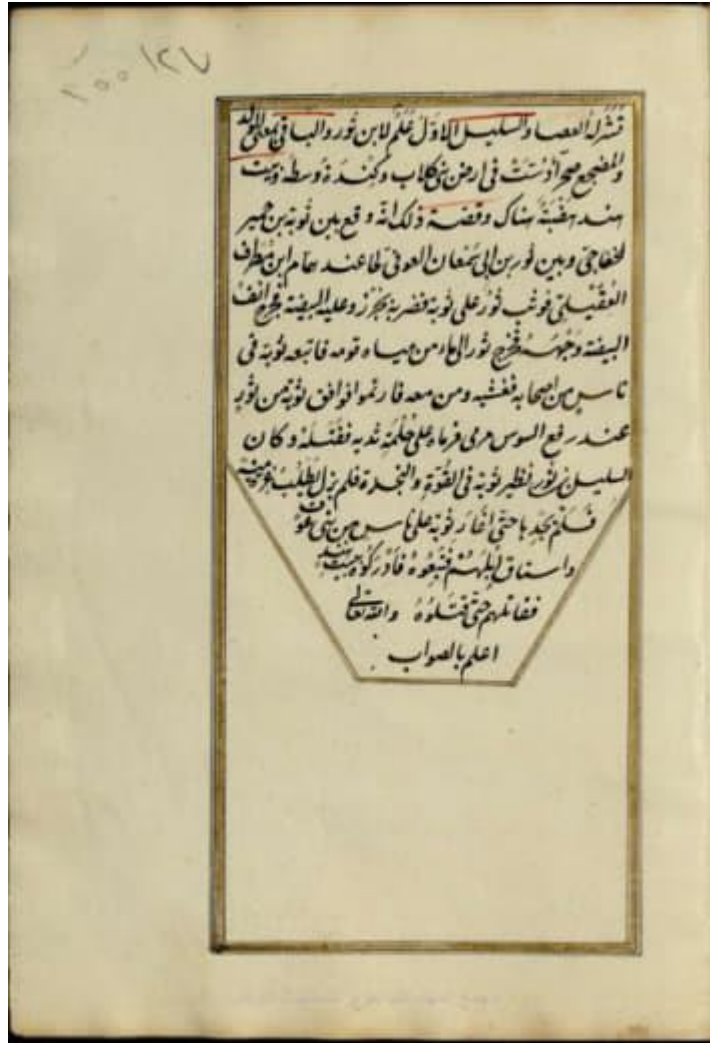 ١٢٧
١٥٥
تشركه العصا والسليل الاوّل عَلَم لابن ثور والباقى بمعنى الولد
والمضجع صحرآء نبتت فى ارض بنى كلاب وكبدة وسطه وبنت
هند هضبة هناك وقصّة ذلك انّه وقع بين توبة بن حمير
الخفاجى وبين ثور بن ابى سمعان العوفى لحا عند همام ابن مطرف
العُقَيلى فوثب ثور على توبة فضربه بجُرز وعليه البيضة فجرح انف
البيضة وجهه فخرج ثور الى ماء من مياه قومه فاتبعه توبة فى
ناس من اصحابه فغشيه ومن معه فارتموا فوافق توبة من ثور
عند رفع السوس مرمى فرماه على حلمة ثديه فقتله وكان
السليل بن ثور نظير توبة فى القوّة والنجدة فلم يزل يطلب
فلم يجدها حتى اغار توبة على ناس من بنى عوف
واستاق ابلهم فتبعوه فادركوه
فقاتلهم حتى قتلوه والله تعالى
اعلم بالصواب